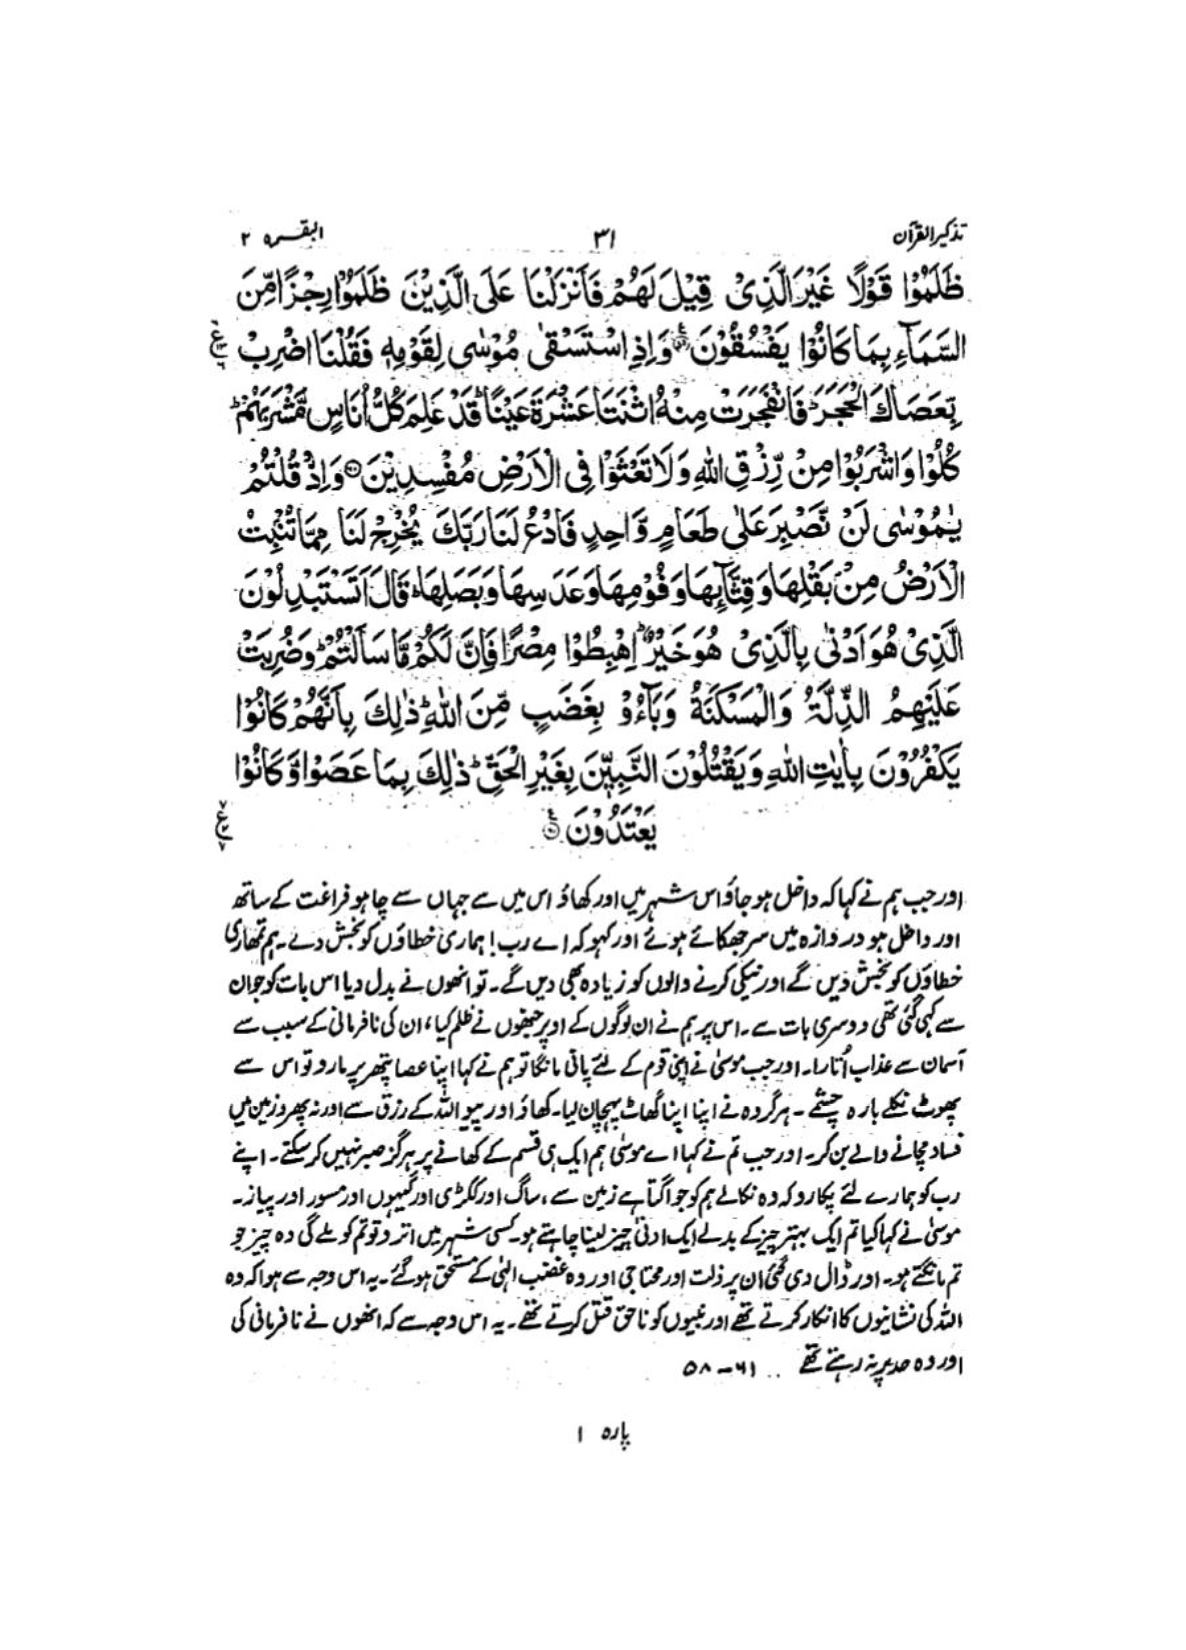 تذکیر القرآن ۳۱ البقرہ ۲
ظَلَمُوْا قَوْلًا غَيْرَ الَّذِیْ قِيْلَ لَهُمْ فَاَنْزَلْنَا عَلَی الَّذِيْنَ ظَلَمُوْا رِجْزًا مِّنَ
السَّمَآءِ بِمَا كَانُوْا يَفْسُقُوْنَ ۝ وَاِذِ اسْتَسْقٰی مُوْسٰی لِقَوْمِهٖ فَقُلْنَا اضْرِبْ
بِّعَصَاكَ الْحَجَرَ ؕ فَانْفَجَرَتْ مِنْهُ اثْنَتَا عَشْرَةَ عَيْنًا ؕ قَدْ عَلِمَ كُلُّ اُنَاسٍ مَّشْرَبَهُمْ ؕ
كُلُوْا وَاشْرَبُوْا مِنْ رِّزْقِ اللّٰهِ وَلَا تَعْثَوْا فِی الْاَرْضِ مُفْسِدِيْنَ ۝ وَاِذْ قُلْتُمْ
يٰمُوْسٰی لَنْ نَّصْبِرَ عَلٰی طَعَامٍ وَّاحِدٍ فَادْعُ لَنَا رَبَّكَ يُخْرِجْ لَنَا مِمَّا تُنْۢبِتُ
الْاَرْضُ مِنْۢ بَقْلِهَا وَقِثَّآئِهَا وَفُوْمِهَا وَعَدَسِهَا وَبَصَلِهَا ؕ قَالَ اَتَسْتَبْدِلُوْنَ
الَّذِیْ هُوَ اَدْنٰی بِالَّذِیْ هُوَ خَيْرٌ ؕ اِهْبِطُوْا مِصْرًا فَاِنَّ لَكُمْ مَّا سَاَلْتُمْ ؕ وَضُرِبَتْ
عَلَيْهِمُ الذِّلَّةُ وَالْمَسْكَنَةُ وَبَآءُوْ بِغَضَبٍ مِّنَ اللّٰهِ ؕ ذٰلِكَ بِاَنَّهُمْ كَانُوْا
يَكْفُرُوْنَ بِاٰيٰتِ اللّٰهِ وَيَقْتُلُوْنَ النَّبِيّٖنَ بِغَيْرِ الْحَقِّ ؕ ذٰلِكَ بِمَا عَصَوْا وَّكَانُوْا
يَعْتَدُوْنَ ۝
اور جب ہم نے کہا کہ داخل ہو جاؤ اس شہر میں اور کھاؤ اس میں سے جہاں سے چاہو فراغت کے ساتھ
اور داخل ہو دروازہ میں سر جھکائے ہوئے اور کہو کہ اے رب! ہماری خطاؤں کو بخش دے۔ ہم تمھاری
خطاؤں کو بخش دیں گے اور نیکی کرنے والوں کو زیادہ بھی دیں گے۔ تو انھوں نے بدل دیا اس بات کو جو ان
سے کہی گئی تھی دوسری بات سے۔ اس پر ہم نے ان لوگوں کے اوپر جنھوں نے ظلم کیا، ان کی نافرمانی کے سبب سے
آسمان سے عذاب اُتارا۔ اور جب موسیٰ نے اپنی قوم کے لئے پانی مانگا تو ہم نے کہا اپنا عصا پتھر پر مارو تو اس سے
پھوٹ نکلے بارہ چشمے۔ ہر گروہ نے اپنا اپنا گھاٹ پہچان لیا۔ کھاؤ اور پیو اللہ کے رزق سے اور نہ پھرو زمین میں
فساد مچانے والے بن کر۔ اور جب تم نے کہا اے موسیٰ ہم ایک ہی قسم کے کھانے پر ہرگز صبر نہیں کر سکتے۔ اپنے
رب کو ہمارے لئے پکارو کہ وہ نکالے ہم کو جو اگتا ہے زمین سے، ساگ اور ککڑی اور گیہوں اور مسور اور پیاز۔
موسیٰ نے کہا کیا تم ایک بہتر چیز کے بدلے ایک ادنیٰ چیز لینا چاہتے ہو۔ کسی شہر میں اترو تو تم کو ملے گی وہ چیز جو
تم مانگتے ہو۔ اور ڈال دی گئی ان پر ذلت اور محتاجی اور وہ غضب الٰہی کے مستحق ہو گئے۔ یہ اس وجہ سے ہوا کہ وہ
اللہ کی نشانیوں کا انکار کرتے تھے اور نبیوں کو ناحق قتل کرتے تھے۔ یہ اس وجہ سے کہ انھوں نے نافرمانی کی
اور وہ حد پر نہ رہتے تھے ۶۱-۵۸
پارہ ۱